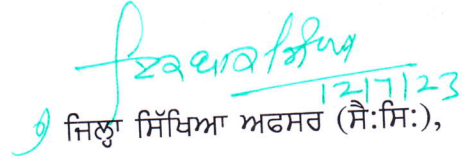 12/7/23
ਜਿਲ੍ਹਾ ਸਿੱਖਿਆ ਅਫਸਰ (ਸੈ:ਸਿ:),